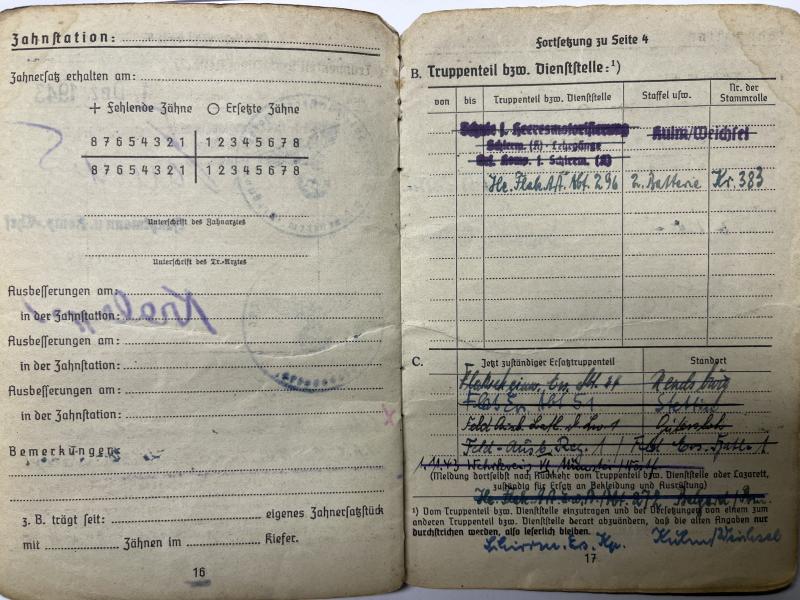 Zahnstation:
Zahnersatz erhalten am:
+ Fehlende Zähne ○ Ersetzte Zähne
8 7 6 5 4 3 2 1 | 1 2 3 4 5 6 7 8
8 7 6 5 4 3 2 1 | 1 2 3 4 5 6 7 8
Unterschrift des Zahnarztes
Unterschrift des Tr.-Arztes
Ausbesserungen am:
in der Zahnstation:
Ausbesserungen am:
in der Zahnstation:
Ausbesserungen am:
in der Zahnstation:
Bemerkungen:
z. B. trägt seit: eigenes Zahnersatzstück
mit Zähnen im Kiefer.
16
Fortsetzung zu Seite 4
B. Truppenteil bzw. Dienststelle:¹)
von bis Truppenteil bzw. Dienststelle Staffel usw. Nr. der Stammrolle
Schule f. Heeresmotorisierung Kulm/Weichsel
Schirrm. (K) - Lehrgänge
Komp. f. Schirrm. (K)
He. Flak. Art. Abt. 296 2. Batterie Kr. 383
C. Jetzt zuständiger Ersatztruppenteil Standort
Rendsburg
Stettin
Feld-Ausb. Reg. 1
Wehrkreis VI Münster
(Meldung dortselbst nach Rückkehr vom Truppenteil bzw. Dienststelle oder Lazarett,
zuständig für Ersatz an Bekleidung und Ausrüstung)
¹) Vom Truppenteil bzw. Dienststelle einzutragen und bei Versetzungen von einem zum
anderen Truppenteil bzw. Dienststelle derart abzuändern, daß die alten Angaben nur
durchstrichen werden, also leserlich bleiben.
Schirrm. Ers. Kp. Kulm/Weichsel
17